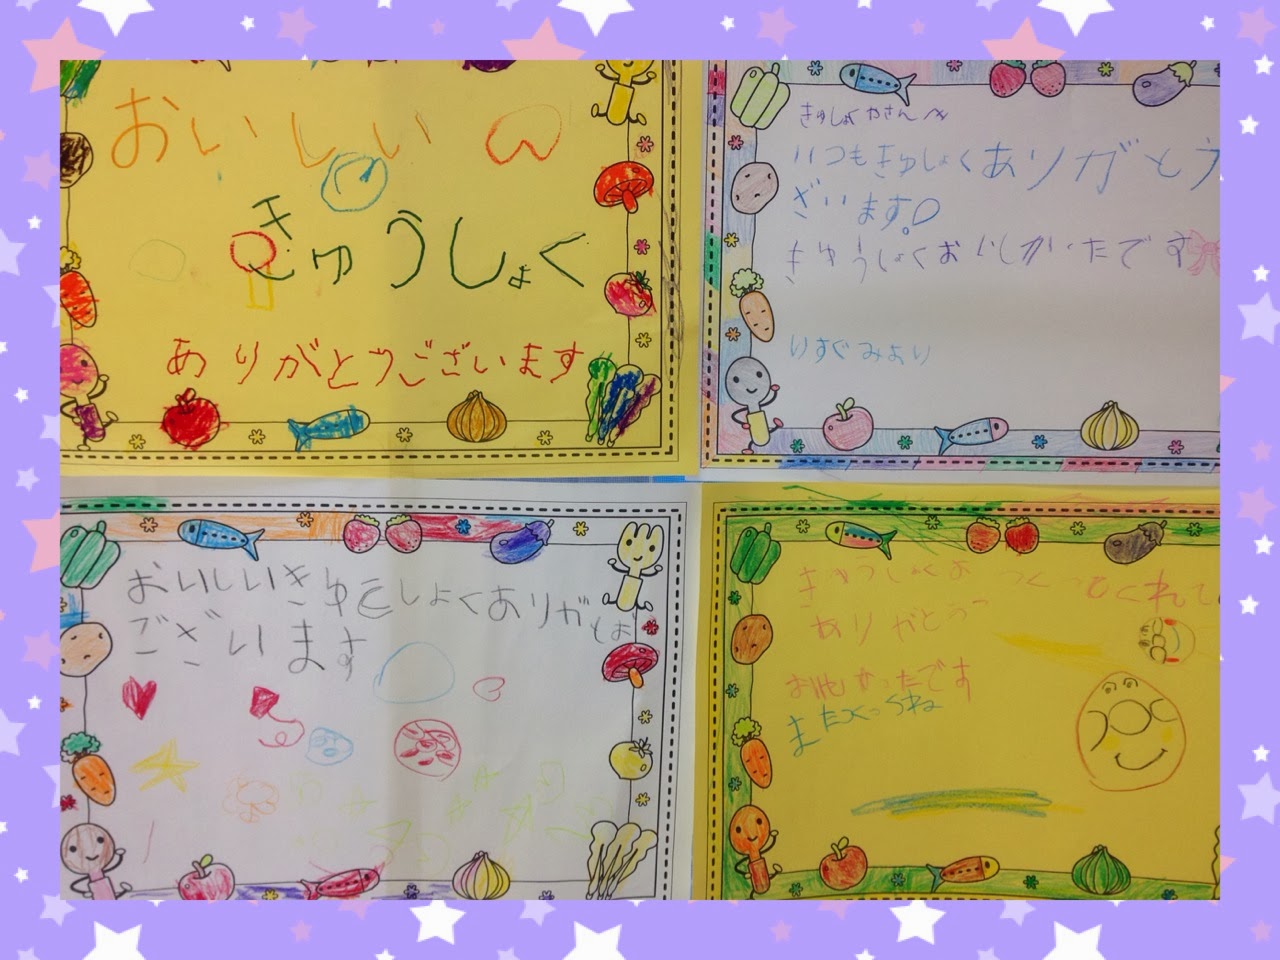 おいしい
きゅうしょく
ありがとうございます
きゅしょくやさんへ
いつもきゅしょくありがとう
ざいます。
きゅうしょくおいしかいたです
いすぐみより
おいしいきゆ しょくありがとお
ございます
きゅうしょくお つくってくれて
ありがとう
おいしかったです
またつくってね